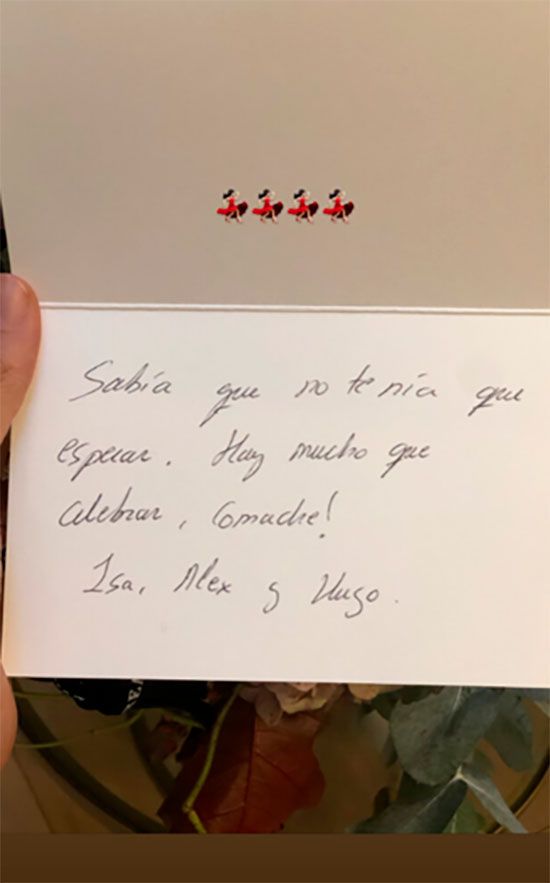 Sabía que no tenía que
esperar. Hay mucho que
celebrar, Comache!
Isa, Alex y Hugo.